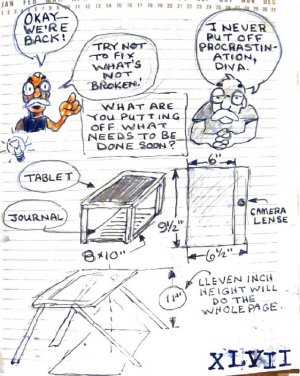 JAN
NOV DEC
OKAY—
WE'RE
BACK!
TRY NOT
TO FIX
WHAT'S
NOT
BROKEN!
I NEVER
PUT OFF
PROCRASTIN-
ATION,
DIVA.
WHAT ARE
YOU PUTTING
OFF WHAT
NEEDS TO BE
DONE SOON?
TABLET
JOURNAL
8x10"
6"
9½"
6½"
CAMERA
LENSE
11"
LLEVEN INCH
HEIGHT WILL
DO THE
WHOLE PAGE.
XLVII